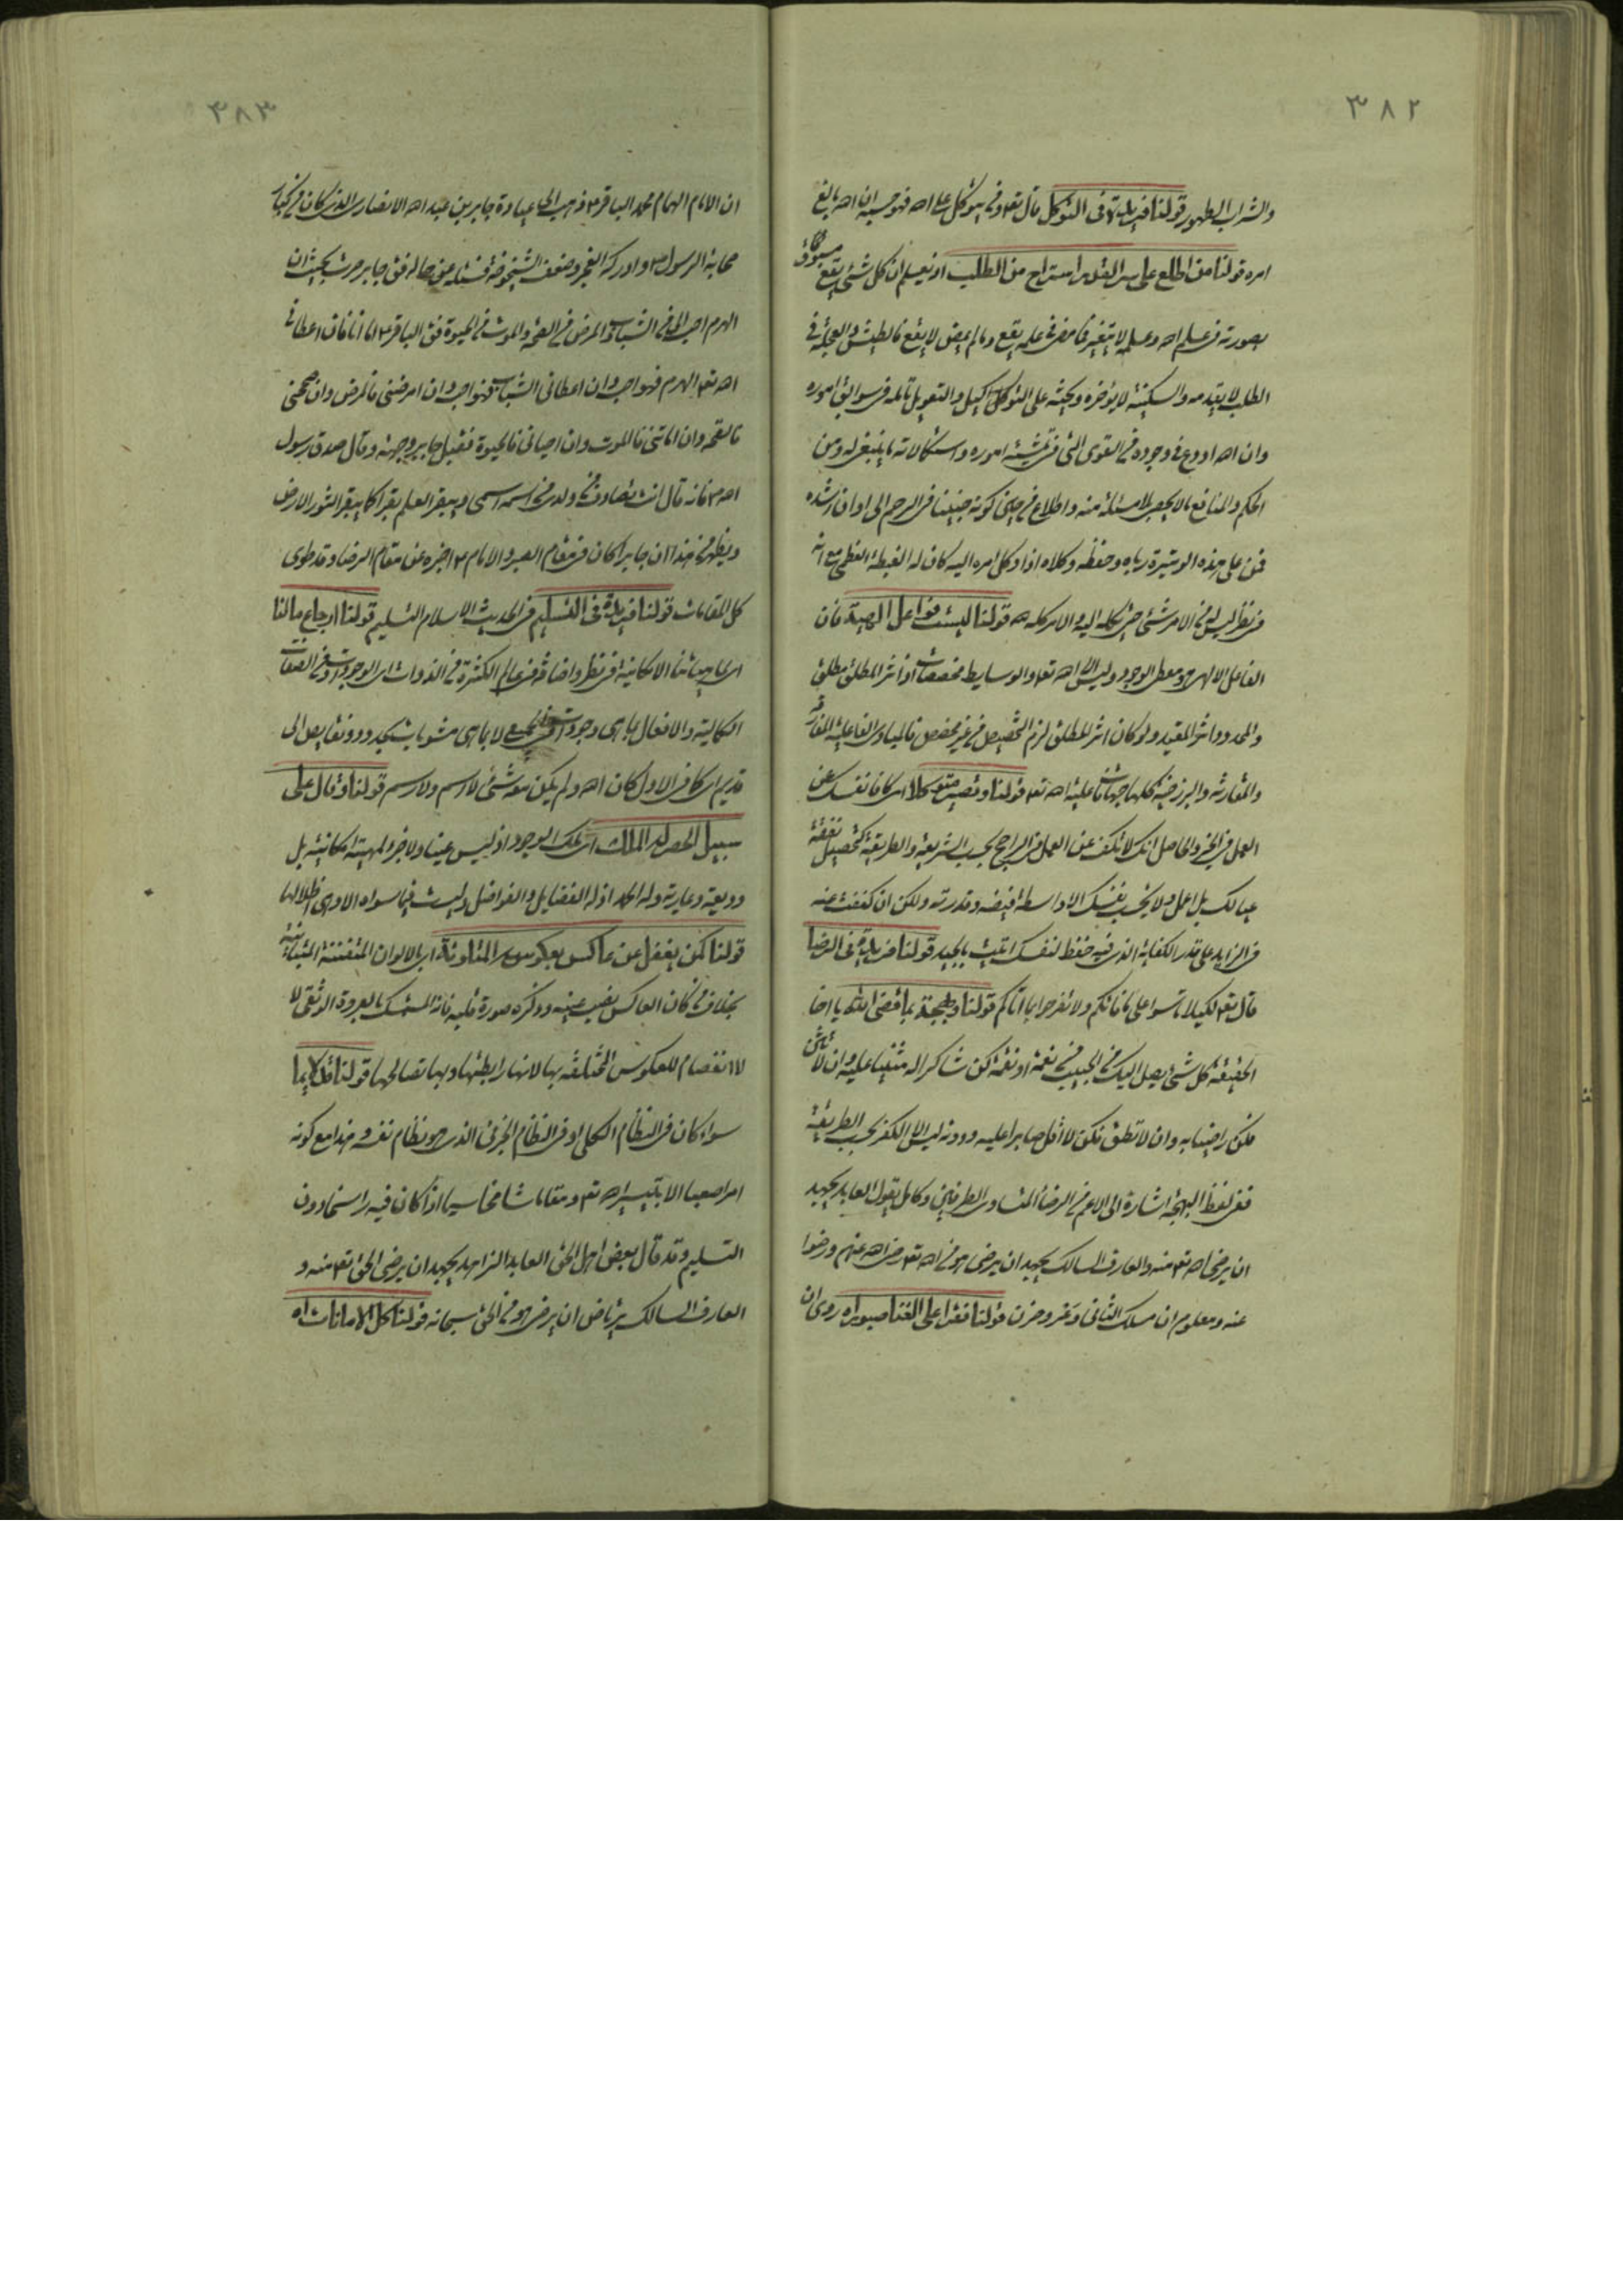 ٣٨٢
والشراب الطهور قولنا فريدة فى التوكل قال تعه ومن يتوكل على الله فهو حسبه ان الله بالغ
امره قولنا من اطلع على سر القدر استراح من الطلب اذ يعلم ان كل شئ يقع مسبوق
بصورته فى علم الله وعلمه لا يتغير فما مضى فى علمه يقع وما لم يمض لا يقع فالطيش والعجلة فى
الطلب لا يقدمه والسكينة لا يؤخره ويحثه على التوكل والتعويل تامله فى سوابق اموره
وان الله اودع فى وجوده من القوى التى فى تمشية اموره واستكمالاته ما ينبغى له ومن
الحكم والمنافع ما لا يحصى بلا مسئلة منه واطلاع من حين كونه جنينا فى الرحم الى اوان رشده
فمن على هذه الوتيرة رباه وحفظه وكلاه اذا وكل امره اليه كان له الغبطة العظمى مع انه
فى نظر ليس له من الامر شئ حتى يكله اليه والامر كله لله قولنا ليست فواعل الهية فان
الفاعل الالهى هو معطى الوجود وليس الا الله تعه والوسايط مخصصات اذ اثر المطلق مطلق
والمحدود اثر المقيد ولو كان اثر المطلق لزم التخصيص من غير مخصص فالمبادى الفاعلية المفارقة
والمقارنة والبرزخية كلها جهات فاعلية الله تعه قولنا وتصير متوكلا اى كافا نفسك عن
العمل فى الخ والحاصل انك لا تكف عن العمل فى الراجح بحسب الشريعة والطريقة كتحصيل نفقة
عيالك بل اعمل ولا تحسب نفسك الا واسطة فيضه وقدرته ولكن ان كففت عنه
فى الزايد على قدر الكفاية الذى فيه حفظ لنفسك اتيت بالجيد قولنا فريدة فى الرضا
قال تعه لكيلا تاسوا على ما فاتكم ولا تفرحوا بما اتاكم قولنا وبهجة بما قضى الله يا اخا
الحقيقة كل شئ يصل اليك من الحبيب من نعمة او نقمة كن شاكرا له مثنيا عليه وان لا تاتى
فكن راضيا به وان لا تطق تكن لا اقل صابرا عليه ودونه ليس الا الكفر بحسب الطريقة
ففى لفظ البهجة اشارة الى الاعم من الرضا المتساوى الطرفين وكامل يقول العابد يجهد
ان يرضى الله تعه منه والعارف السالك يجهد ان يرضى هو من الله تعه رضى الله عنهم ورضوا
عنه ومعلوم ان مسلك الثانى وعر وحزن قولنا فقرا على الغنا صبورا اه روى ان
٣٨٣
ان الامام الهمام محمد الباقر ع ذهب الى عيادة جابر بن عبد الله الانصارى الذى كان من كبار
صحابة الرسول ص وادركه الفقر وضعف الشيخوخة فسئله عن حاله فق جابر صرت بحيث ان
الهرم احب الى من الشباب والمرض من الصحة والموت من الحيوة فق الباقر ع اما انا فان اعطانى
الله تعه الهرم فهو احب وان اعطانى الشباب فهو احب وان امرضنى فالمرض وان صححنى
فالصحة وان اماتنى فالموت وان احيانى فالحيوة فقبل جابر وجهه وقال صدق رسول
الله ص فانه قال انت تصادف من ولدى من اسمه اسمى ويبقر العلم بقرا كما يبقر الثور الارض
ويظهر من هذا ان جابرا كان فى مقام الصبر والامام ع اخبره عن مقام الرضا وقد طوى
كل المقامات قولنا فريدة فى التسليم فى الحديث الاسلام التسليم قولنا ارجاع ما لنا
اى ما هيأتنا الامكانية فى نظر واضافة من عالم الكثرة من الذوات اى الوجودات ومن الصفات
الكمالية والافعال بما هى وجودات لا بما هى مشوبات بحدود ونقايص الى
قديم اى كما فى الاول كان الله ولم يكن معه شئ لا اسم ولا رسم قولنا وقال على
سبيل الحصر له الملك اى ملك الوجود اذ ليس عينا ولا جزء لمهية امكانية بل
وديعة وعارية وله الحمد اذ له الفضايل والفواضل وليست فيما سواه الا وهى اظلالها
قولنا كمن يغفل عن عاكس بعكوسه المتلونة اى بالالوان المتفننة المتباينة
بخلاف من كان العاكس نصب عينه وذكره صورة قلبه فانه المستمسك بالعروة الوثقى لا
لا انفصام للعكوس المختلفة بها لانها رابطتها وبها تصالحها قولنا قل لا بما
سواء كان فى النظام الكلى او فى النظام الجزئى الذى هو نظام نفسه وهذا مع كونه
امرا صعبا الا بتيسير الله تعه ومقاما شامخا سيما اذا كان فيه راسخا دون
التسليم وقد قال بعض اهل الحق العابد الزاهد يجهد ان يرضى الحق تعه منه و
العارف السالك يرتاض ان يرضى هو من الحق سبحانه قولنا كل الامانات اه